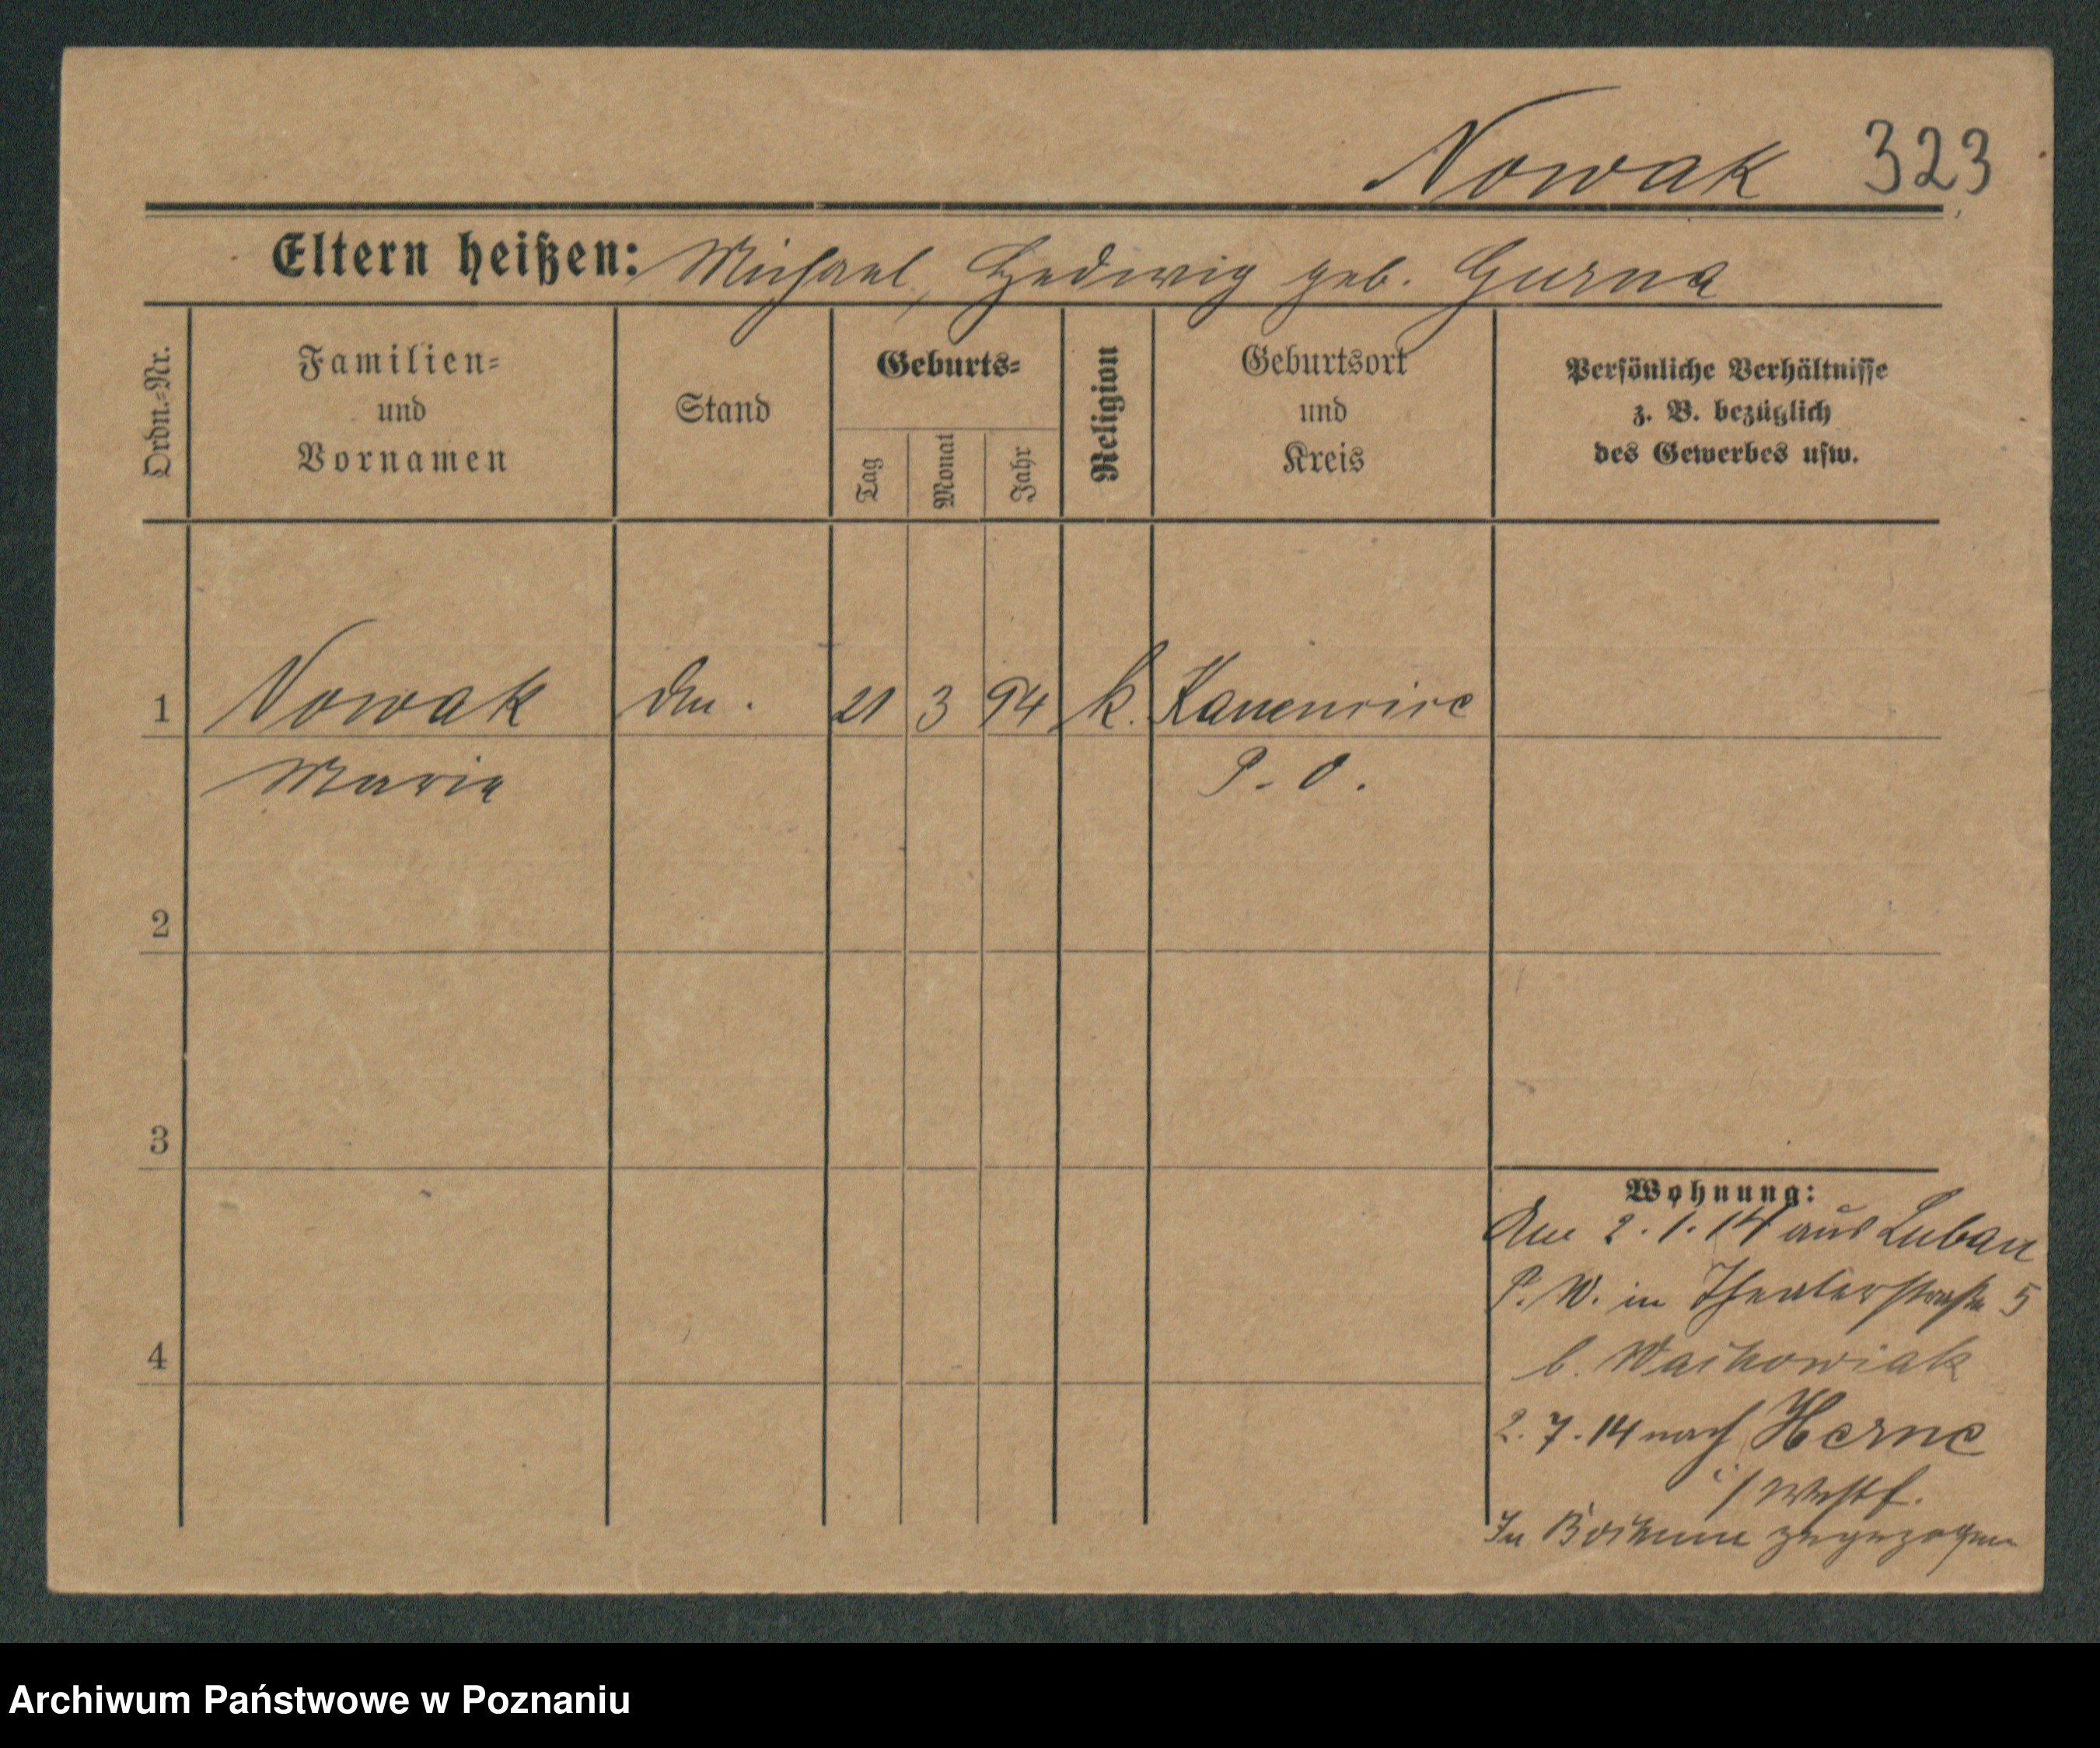 Nowak 323
Eltern heißen: Michael, Hedwig geb. Gurna
Ordn.-Nr.
Familien-
und
Vornamen
Stand
Geburts-
Tag
Monat
Jahr
Religion
Geburtsort
und
Kreis
Persönliche Verhältnisse
z. B. bezüglich
des Gewerbes usw.
1 Nowak 21 3 94 k.
Maria P. O.
2
3
4
Wohnung:
Am 2.1.14 aus Luban
P. W. in Theaterstraße 5
b. Wachowiak
2.7.14 nach Herne
i/Westf.
In Bochum zugezogen
Archiwum Państwowe w Poznaniu